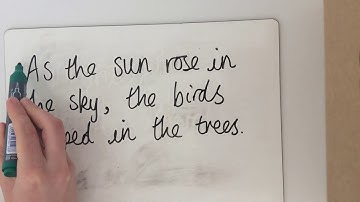 As the sun rose in
the sky, the birds
in the trees.